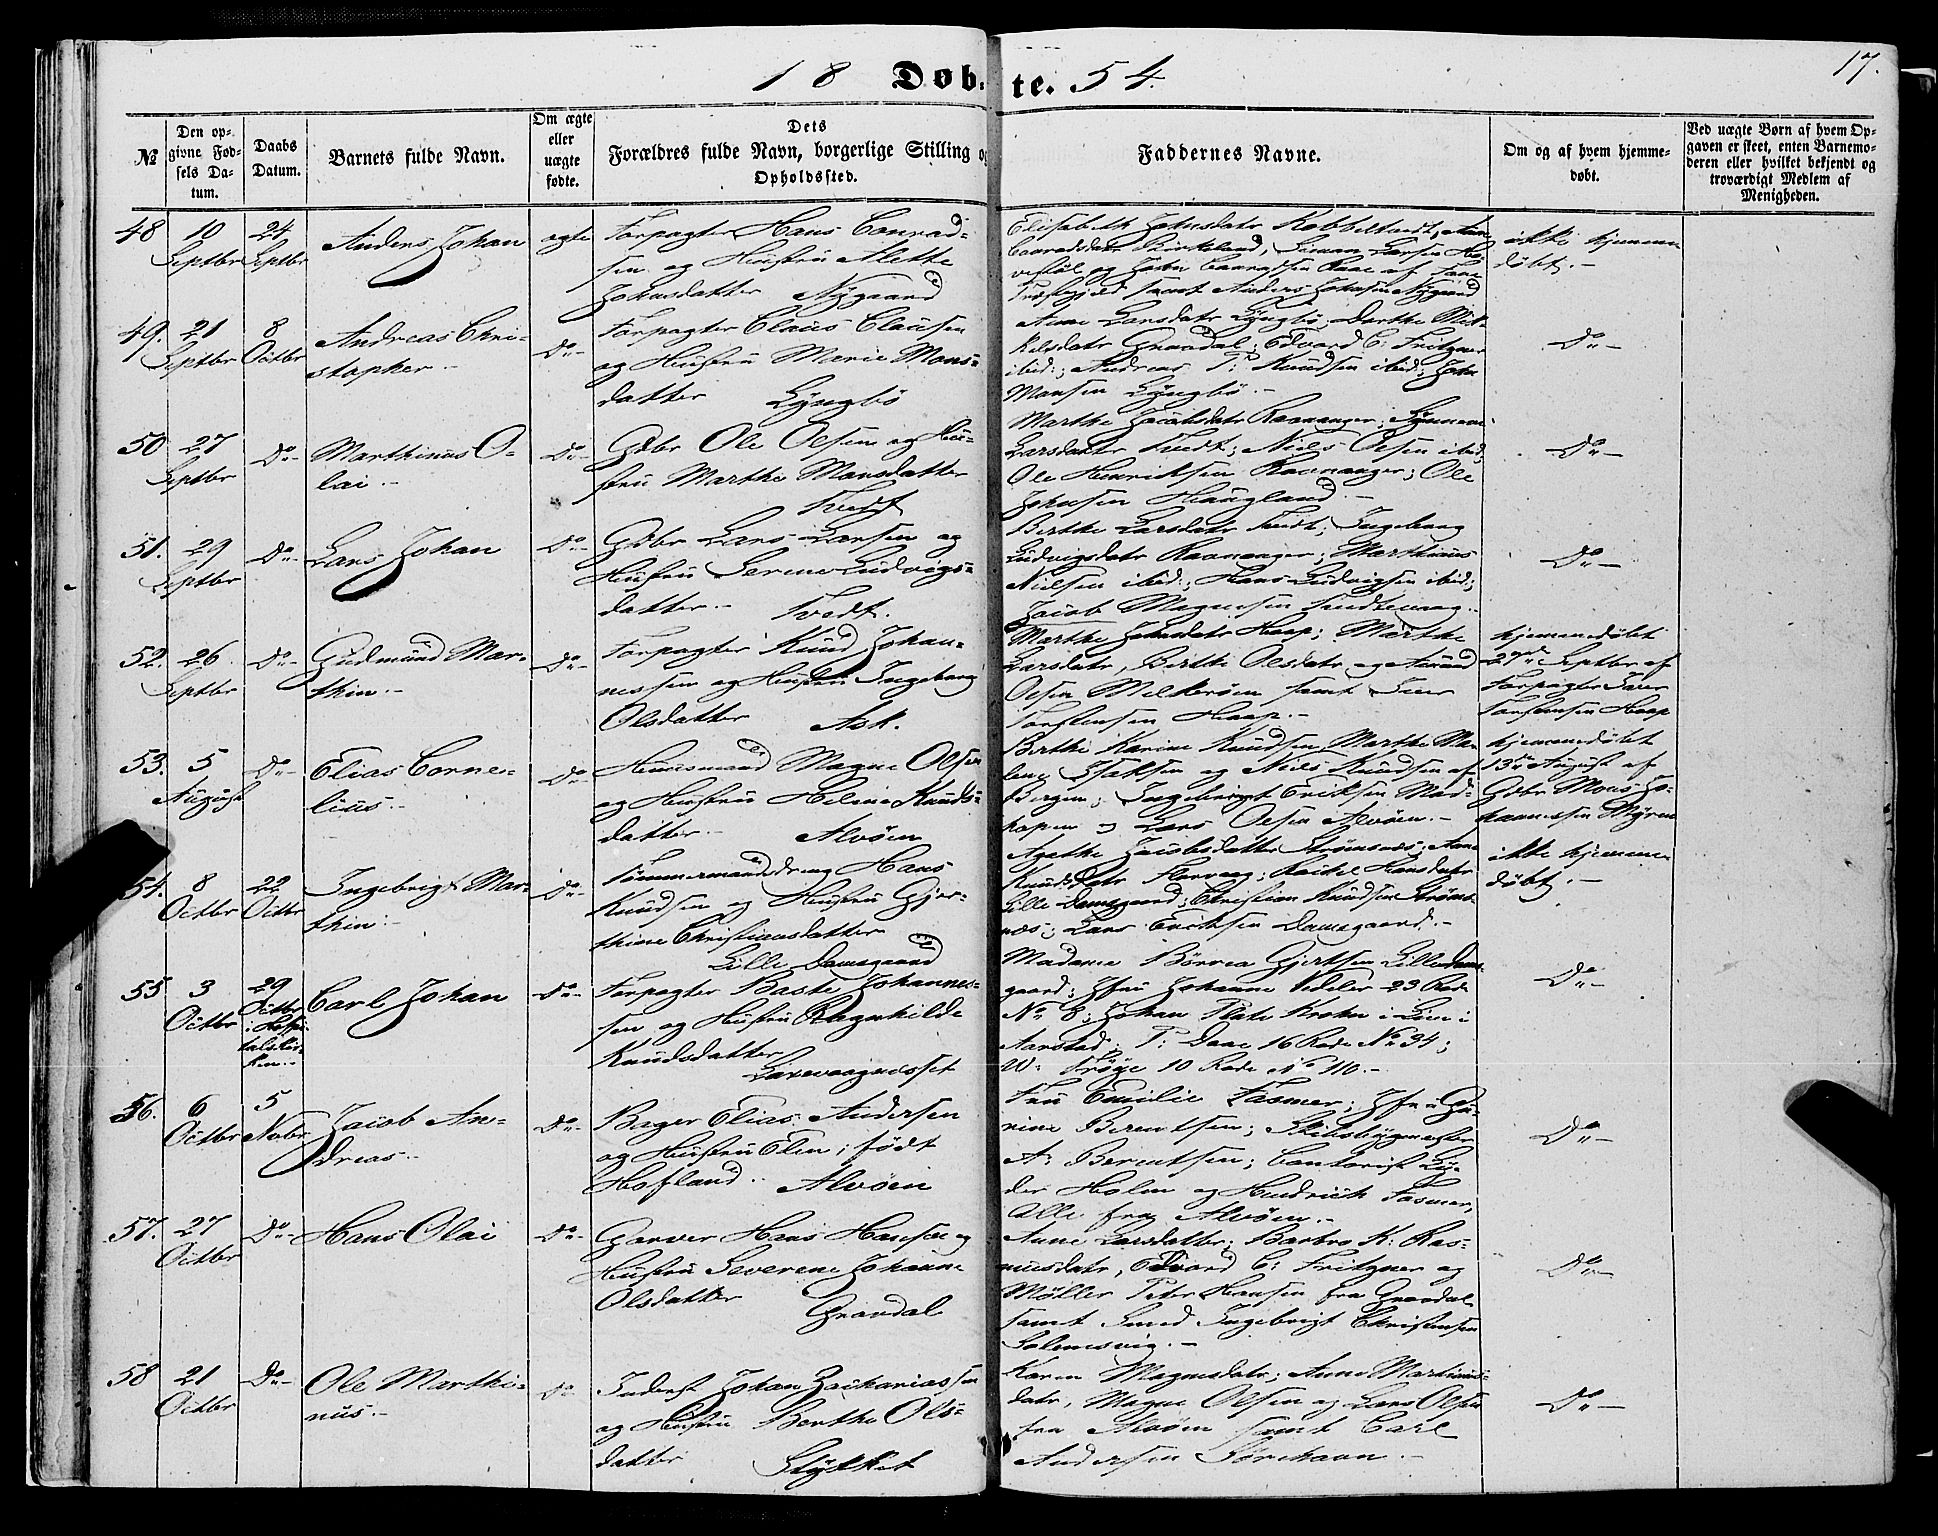 18 Døbte. 54.
17.
№
Den opgivne Fødsels Datum.
Daabs Datum.
Barnets fulde Navn.
Om ægte eller uægte fødte.
Dets Forældres fulde Navn, borgerlige Stilling og Opholdssted.
Faddernes Navne.
Om og af hvem hjemmedøbt.
Ved uægte Børn af hvem Opgaven er skeet, enten Barnemoderen eller hvilket bekjendt og troværdigt Medlem af Menigheden.
48 10 Septbr 24 Septbr Anders Johan ægte
Forpagter Hans Conrad-
sen og Hustru Alette
Johnsdatter Nygaard
Elisabeth Johnsdatr
Conradsdatr Birkeland, Larsen
og John Conradsen
samt Anders Johnsen Nygaard
ikke hjemme-
døbt.-
49. 21 Septbr 8 Octbr Andreas Chri-
stopher.- Do-
Forpagter Claus Clausen
og Hustru Marie Mons-
datter Lyngbø
Anne Larsdatr Lyngbø, Dorthe Mik-
kelsdatr Gravdal; Edvard C: Fritzner
ibid:; Andreas T: Knudsen ibid; John
Monsen Lyngbø.-
Do-
50 27 Septbr Do- Marthinus O-
lai.- Do-
Gdbr Ole Olsen og Hu-
stru Marthe Monsdatter
Tvedt
Marthe Jacobsdatr Ravnanger;
Larsdatter Tvedt; Niels Olsen ibid;
Ole Henriksen Ravnanger; Ole
Johnsen Haugland.-
Do-
51. 29 Septbr Do- Lars Johan Do-
Gdbr Lars Larsen og
Hustru Serine Ludvigs-
datter.- Tvedt.
Berthe Larsdatr Tvedt; Ingeborg
Ludvigsdatr Ravnanger; Marthinus
Nielsen ibid:; Hans Ludvigsen ibid;
Jacob Magnesen
Do-
52. 26 Septbr Do- Gudmund Mar-
thin.- Do-
Forpagter Knud Johan-
nessen og Hustru Ingeborg
Olsdatter Ask.
Marthe Johnsdatr Hop; Marthe
Larsdatr, Birthe Olsdatr og Amund
Olsen samt Iver
Torstensen Hop.-
hjemmedøbt
27de Septbr af
Forpagter Iver
Torstensen Hop
53. 5 August Do- Elias Corne-
lius.- Do-
Huusmand Magne Olsen
og Hustru Helene Knuds-
datter.- Alvøen
Berthe Karine Knudsen, Marthe Ma-
lene Isaksen og Niels Knudsen af
Bergen; Ingebrigt Eriksen Mad-
og Lars Olsen Alvøen.-
hjemmedøbt
13de August af
Gdbr Mons Jo-
hannessen Myren
54. 8 Octbr 22 Octbr Ingebrigt Mar-
thin.- Do-
Tømmermanddreng Hans
Knudsen og Hustru Gjer-
thine Christiansdatter
Lille Damsgaard
Agethe Jacobsdatter Strømsnæs; Anne
Knudsdatr Florvaag; Rachel Hansdatr
Lille Damsgaard; Christian Knudsen Strøms-
næs; Lars Eriksen Damsgaard.-
ikke hjemme-
døbt.-
55 3 Octbr 29 Octbr i Hospi-
talskir-
ken.- Carl Johan Do-
Forpagter Baste Johannes-
sen og Hustru Ragnhilde
Knudsdatter
Laxevaagnesset
Madame Børrea Gjertsen Lille Dams-
gaard; Jfru Johanne Vedeler 23 Rode
No 8; Johan Plate Krohn i
Aarstad; T: Daae 16 Rode No 34;
W: Trøye 10 Rode No 110.-
Do-
56. 6 Octbr 5 Novbr Jacob An-
dreas.- Do-
Bager Elias Andersen
og Hustru Elen, født
Hofland.. Alvøen
Fru Emilie Fasmer; Jfru Gu-
rine Berentsen; Skibsbygmester
A: Berentsen; Contorist Ly-
der Holm og Hendrich Fasmer,
alle fra Alvøen.-
Do-
57. 27 Octbr Do- Hans Olai Do-
Garver Hans Hansen og
Hustru Severine Johanne
Olsdatter Gravdal
Anne Larsdatter; Barbro K: Ras-
musdatr, Edvard C: Fritzner og
Møller Peter Hansen fra Gravdal
samt Smed Ingebrigt Christensen
Salemsvig.-
Do-
58 21 Octbr Do- Ole Marthi-
nus.- Do
Inderst Johan Zachariassen
og Hustru Berthe Ols-
datter Stykket
Karen Magnesdatr; Anne Marthinus-
datr, Magne Olsen og Lars Olsen
fra Alvøen samt Carl
Andersen Børehavn.-
Do-